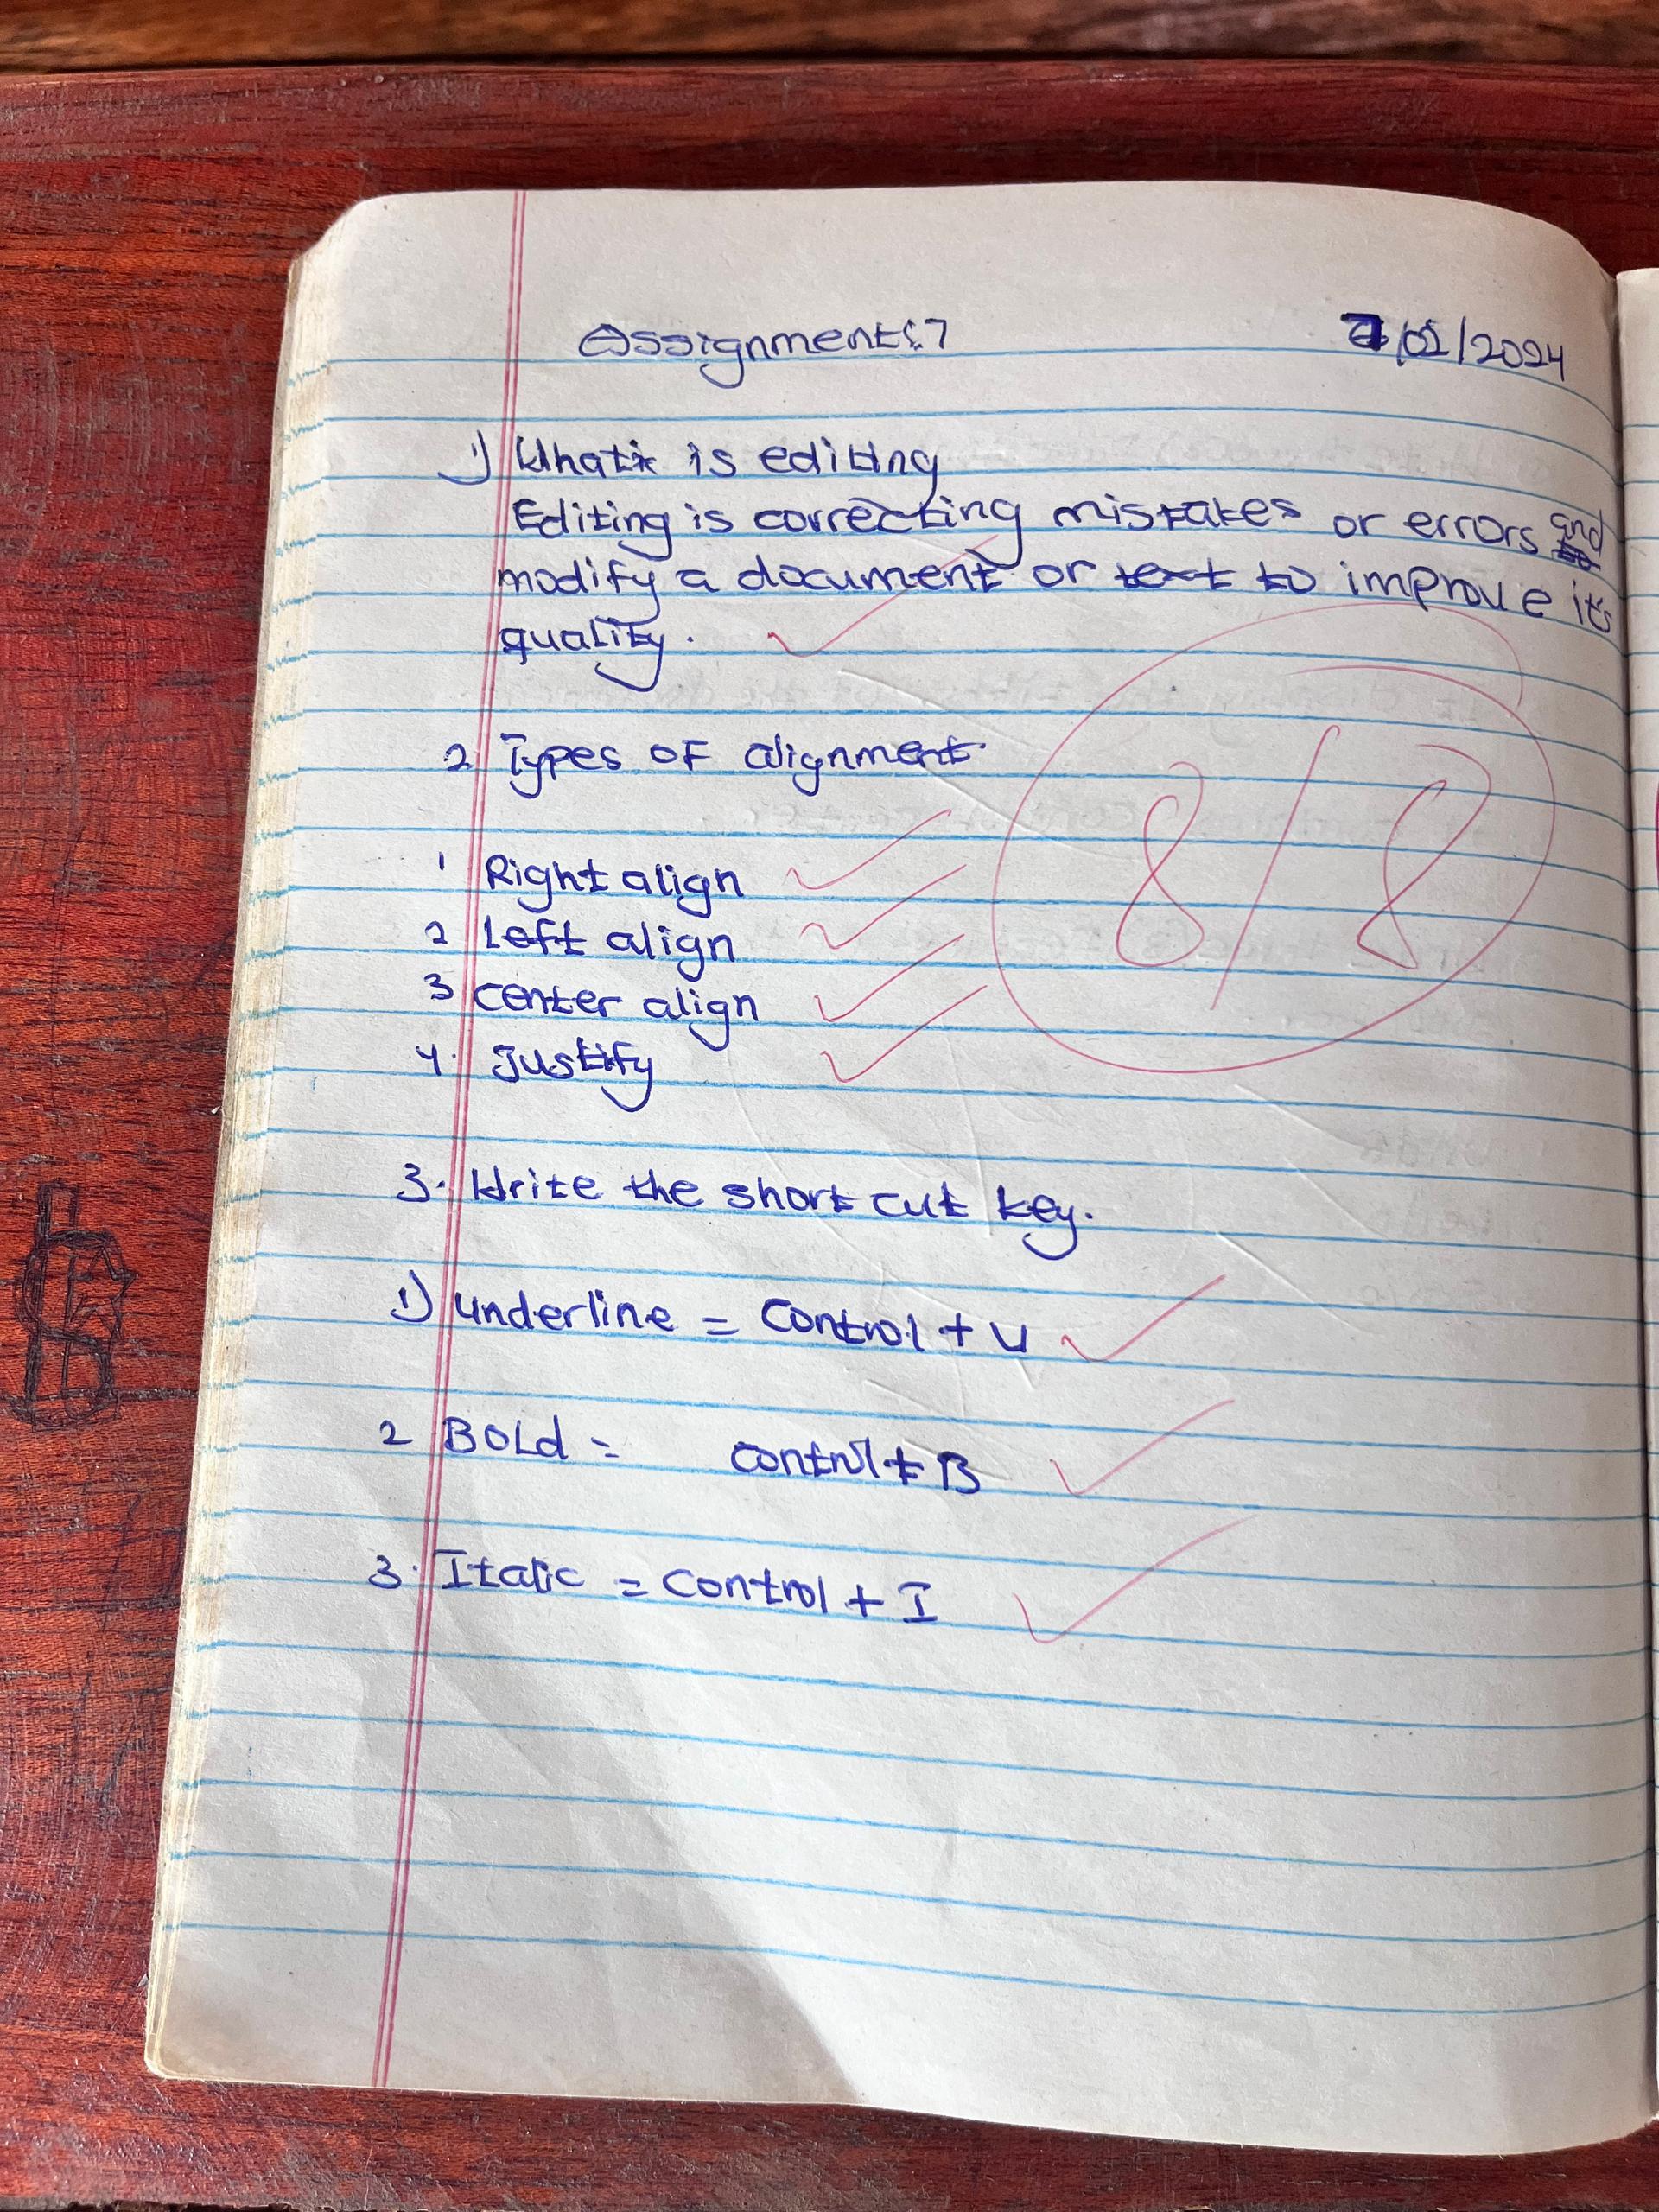 Assignment: 7 7/02/2024
1) What is editing
Editing is correcting mistakes or errors and
modify a document or text to improve its
quality.
2 Types of alignment
1 Right align
2 Left align
3 center align
4. Justify
8/8
3. Write the short cut key.
1) underline = Control + U
2 Bold = control + B
3. Italic = Control + I